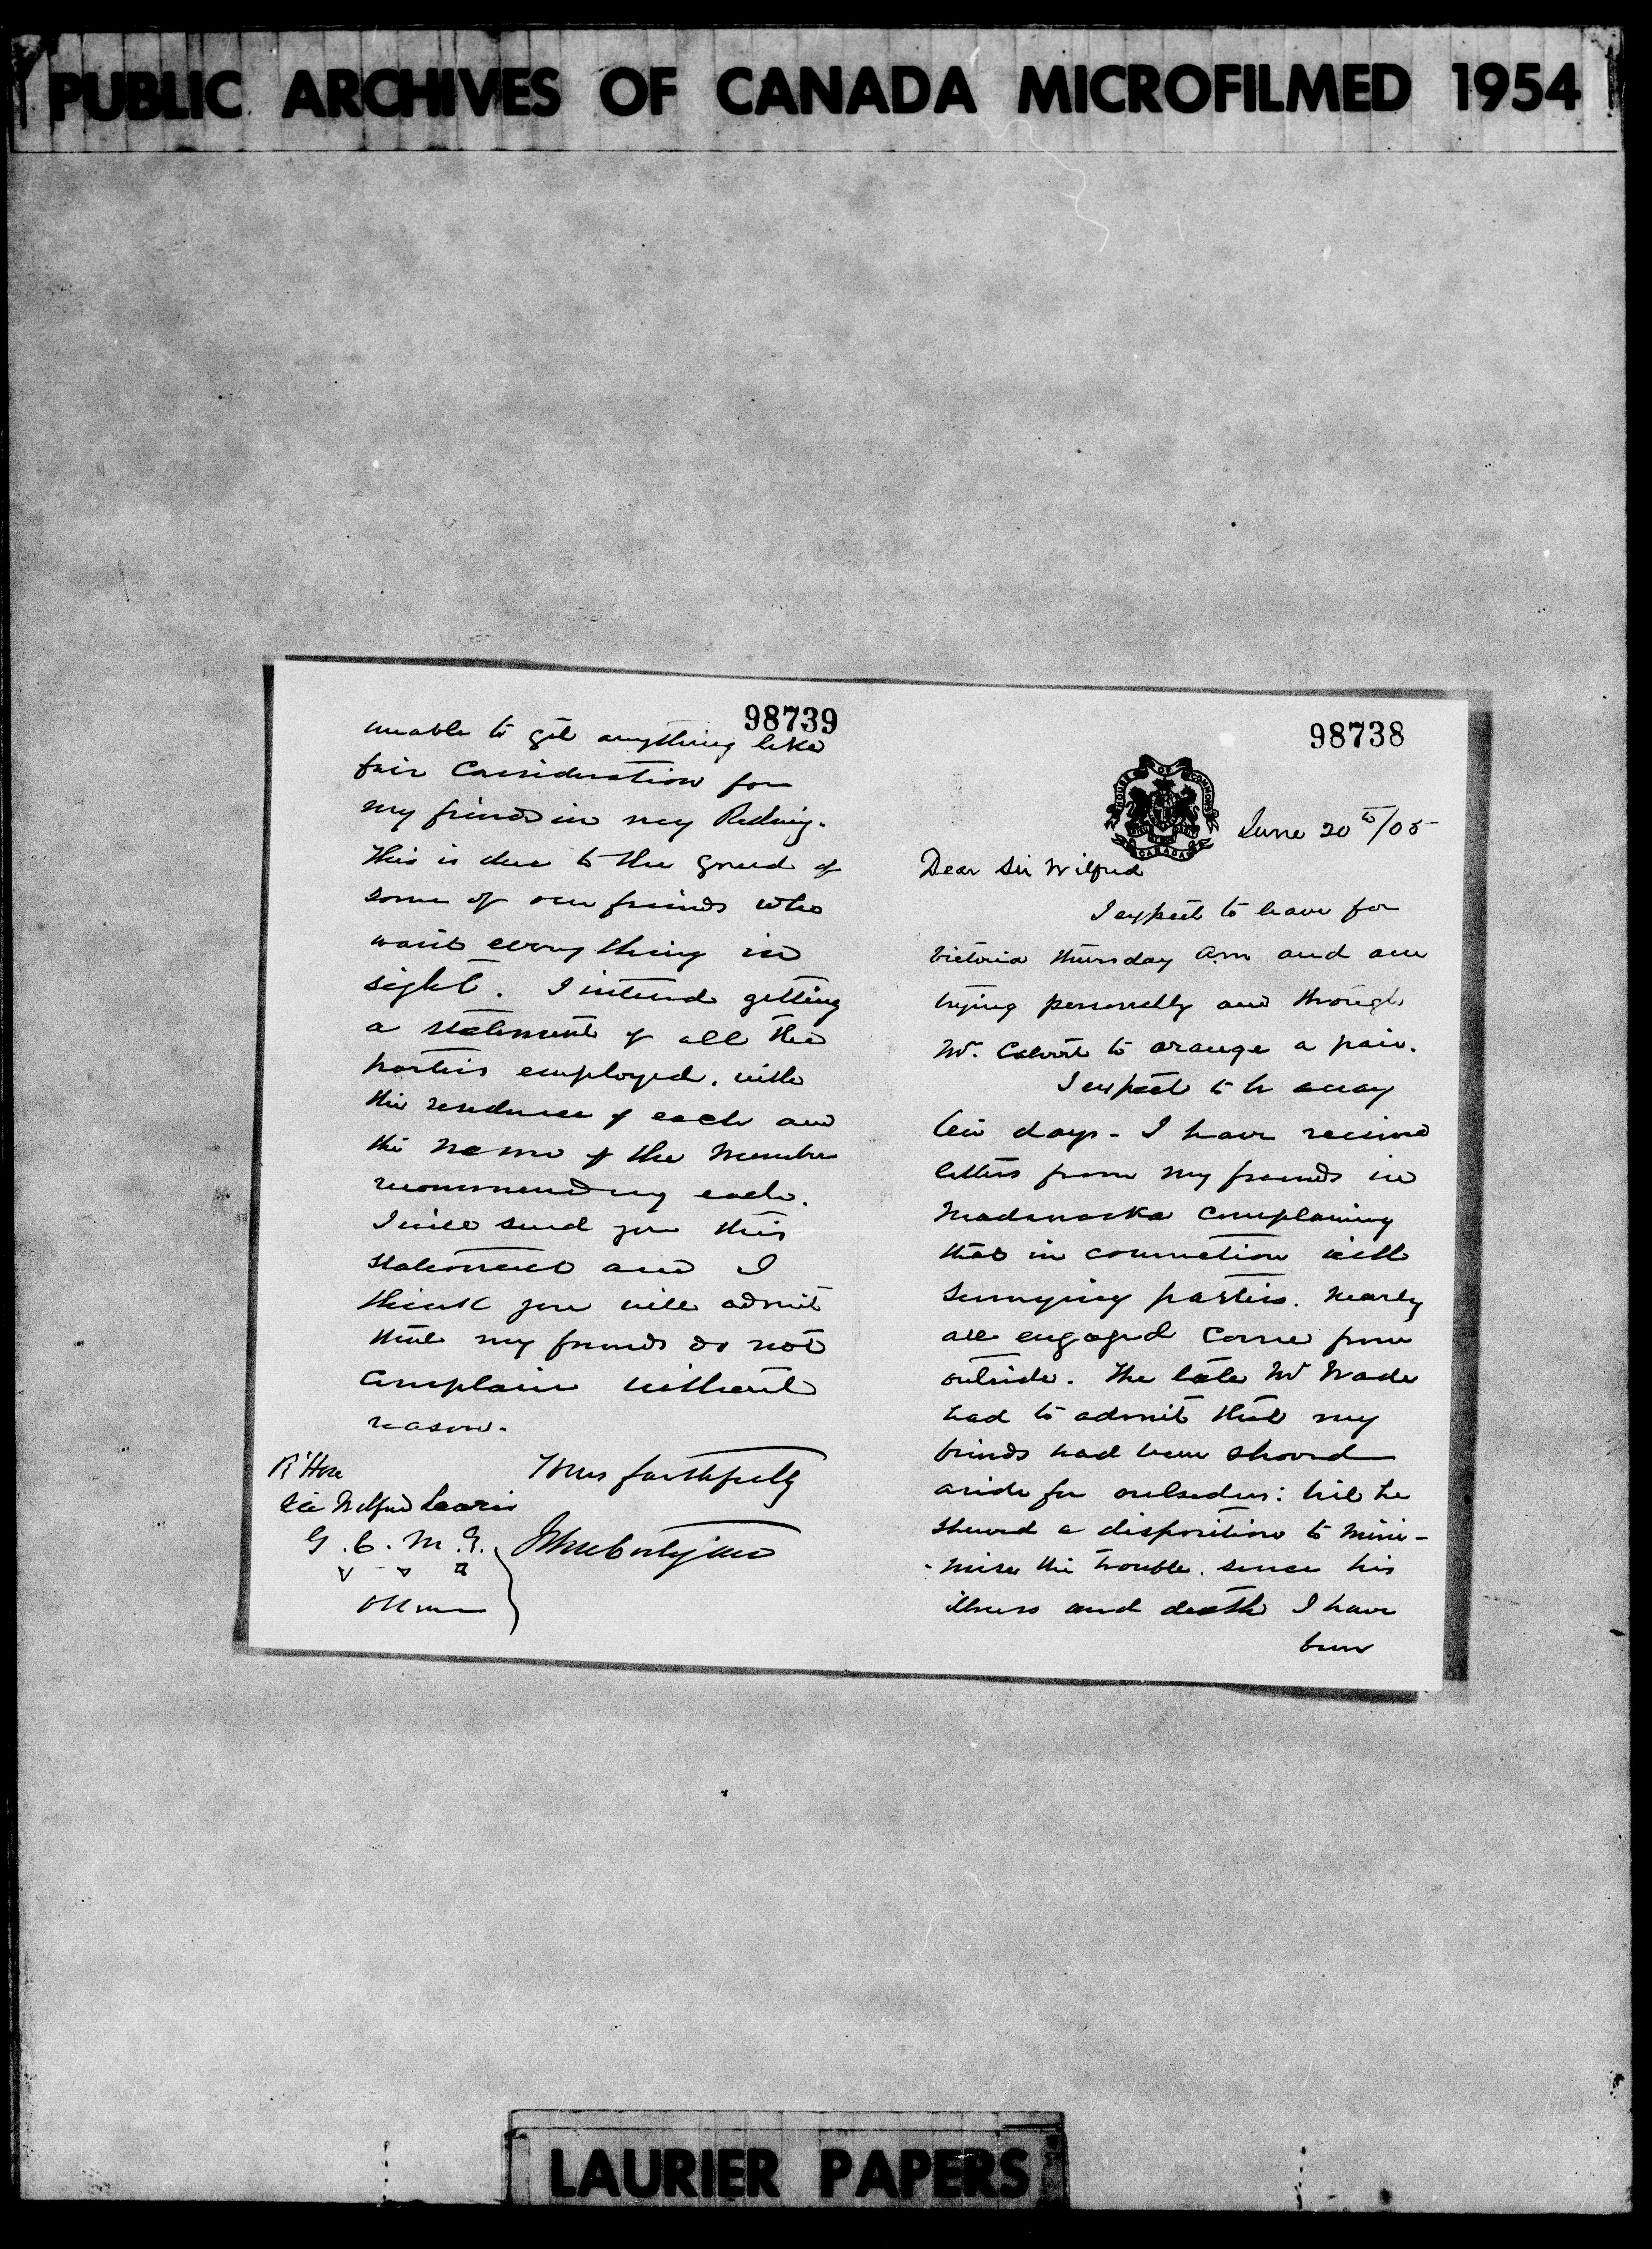 PUBLIC ARCHIVES OF CANADA MICROFILMED 1954
98738
HOUSE OF COMMONS
CANADA
June 20th/05
Dear Sir Wilfrid
I expect to leave for
Victoria Thursday a.m. and am
trying personally and through
Mr. Calvert to arange a pair.
I expect to be away
ten days - I have received
letters from my friends in
Madawaska complaining
that in connection with
Surveying parties. nearly
all engaged come from
outside. The late Mr Wade
had to admit that my
friends had been shoved
aside for outsiders: but he
showed a disposition to mini-
-mise the trouble. since his
illness and death I have
been
98739
unable to get anything like
fair Consideration for
my friends in my Riding.
This is due to the greed of
some of our friends who
want everything in
sight. I intend getting
a statement of all the
parties employed. with
the residence of each and
the name of the Member
recommending each.
I will send you this
statement and I
think you will admit
that my friends do not
Complain without
reason.
Yours faithfully
R' Hon
Sir Wilfrid Laurier
G.C.M.G.
Ottawa
LAURIER PAPERS